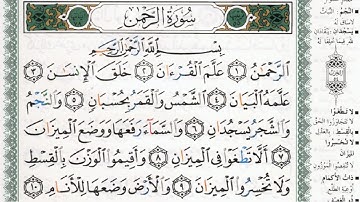 سُورَةُ الرَّحْمٰن
بِسْمِ ٱللَّهِ ٱلرَّحْمَٰنِ ٱلرَّحِيمِ
ٱلرَّحْمَٰنُ ١ عَلَّمَ ٱلْقُرْءَانَ ٢ خَلَقَ ٱلْإِنسَٰنَ ٣
عَلَّمَهُ ٱلْبَيَانَ ٤ ٱلشَّمْسُ وَٱلْقَمَرُ بِحُسْبَانٍ ٥ وَٱلنَّجْمُ
وَٱلشَّجَرُ يَسْجُدَانِ ٦ وَٱلسَّمَآءَ رَفَعَهَا وَوَضَعَ ٱلْمِيزَانَ
٧ أَلَّا تَطْغَوْا۟ فِى ٱلْمِيزَانِ ٨ وَأَقِيمُوا۟ ٱلْوَزْنَ بِٱلْقِسْطِ
وَلَا تُخْسِرُوا۟ ٱلْمِيزَانَ ٩ وَٱلْأَرْضَ وَضَعَهَا لِلْأَنَامِ ١٠